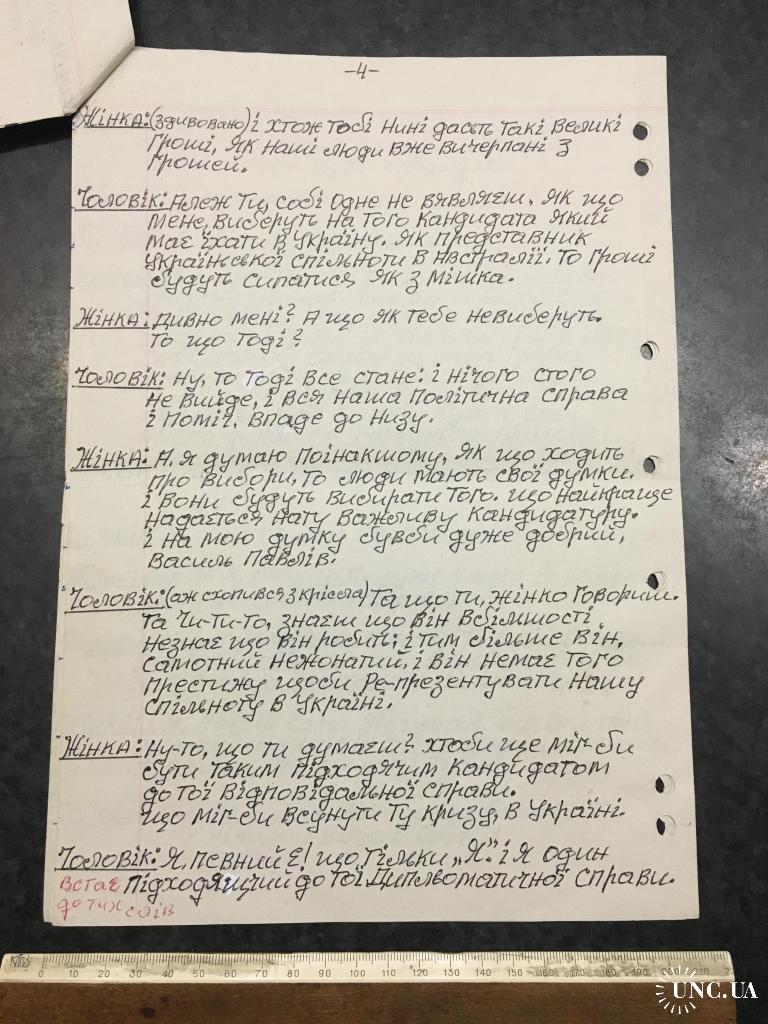 -4-
Жінка: (здивовано) і хтож тобі Нині дасьть такі великі
гроші, як наші люди вже вичерпані з
грошей.
Чоловік: Алеж Ти, собі одне не вявляєш, як що
мене, виберуть на того кандидата який
має їхати в Україну. як представник
української спільноти в Австралії. то гроші
будуть сипатися як з мішка.
Жінка: Дивно мені? А що як тебе невиберуть.
то що тоді?
Чоловік: Ну, то тоді все стане: і нічого стого
не вийде, і вся наша політична справа
і поміч, впаде до низу.
Жінка: А, я думаю поінакшому, як що ходить
про вибори, то люди мають свої думки.
і вони будуть вибирати того. що найкраще
надається нату важливу кандидатуру.
і на мою думку бувби дуже добрий,
Василь Павлів.
Чоловік: (аж схопився з крісєла) Та що ти, жінко говориш.
та чи-ти-то, знаєш що він вбільшості
незнає що він робить; і тим більше він,
самотний нежонатий, і він немає того
престижу щоби ре-презентувати нашу
спільноту в Україні.
Жінка: Ну-то, що ти думаєш? хтоби ще міг-би
бути таким підходячим кандидатом
до тої відповідальної справи.
що міг-би всунути ту кризу, в Україні.
Чоловік: Я, певний є! що тільки „Я". і я один
підходящий до тої Дипльоматичної справи.
встає
до тих слів
0 10 20 30 40 50 60 70 80 90 100 110 120 130 140 150 160 170 180 190
UNC.UA